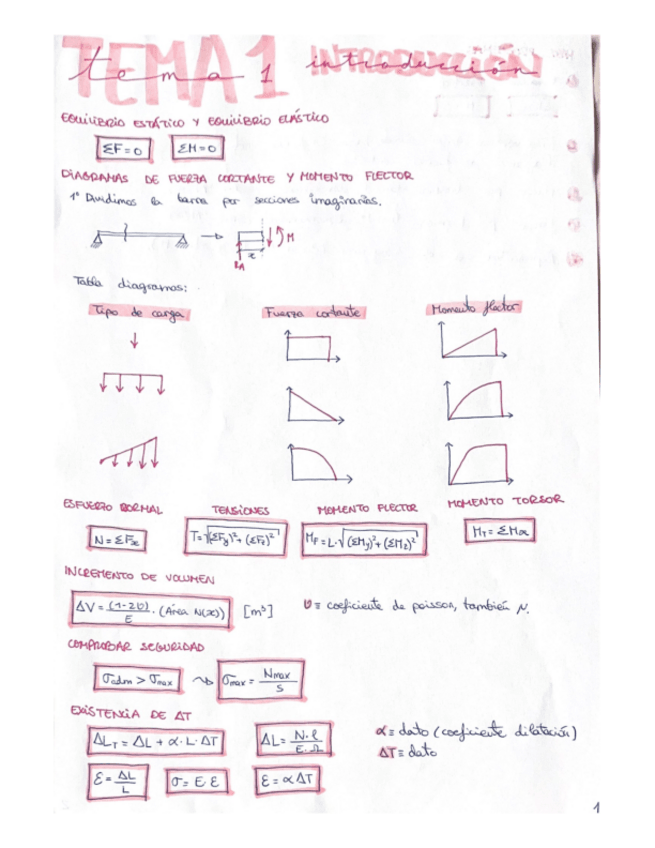 TEMA 1 INTRODUCCIÓN
tema 1 introducción
EQUILIBRIO ESTÁTICO Y EQUILIBRIO ELÁSTICO
ΣF=0 ΣM=0
DIAGRAMAS DE FUERZA CORTANTE Y MOMENTO FLECTOR
1º Dividimos la barra por secciones imaginarias.
M
x
RA
Tabla diagramas:
Tipo de carga Fuerza cortante Momento flector
ESFUERZO NORMAL TENSIONES MOMENTO FLECTOR MOMENTO TORSOR
N=ΣFx T=√(ΣFy)²+(ΣFz)² MF=L·√(ΣMy)²+(ΣMz)² MT=ΣMx
INCREMENTO DE VOLUMEN
ΔV=(1-2υ)/E·(Área N(x)) [m³] υ≡coeficiente de poisson, también μ.
COMPROBAR SEGURIDAD
σadm>σmax σmax=Nmax/S
EXISTENCIA DE ΔT
ΔLT=ΔL+α·L·ΔT ΔL=N·l/E·Ω α≡dato (coeficiente dilatación)
ΔT≡dato
ε=ΔL/L σ=E·ε ε=αΔT
1